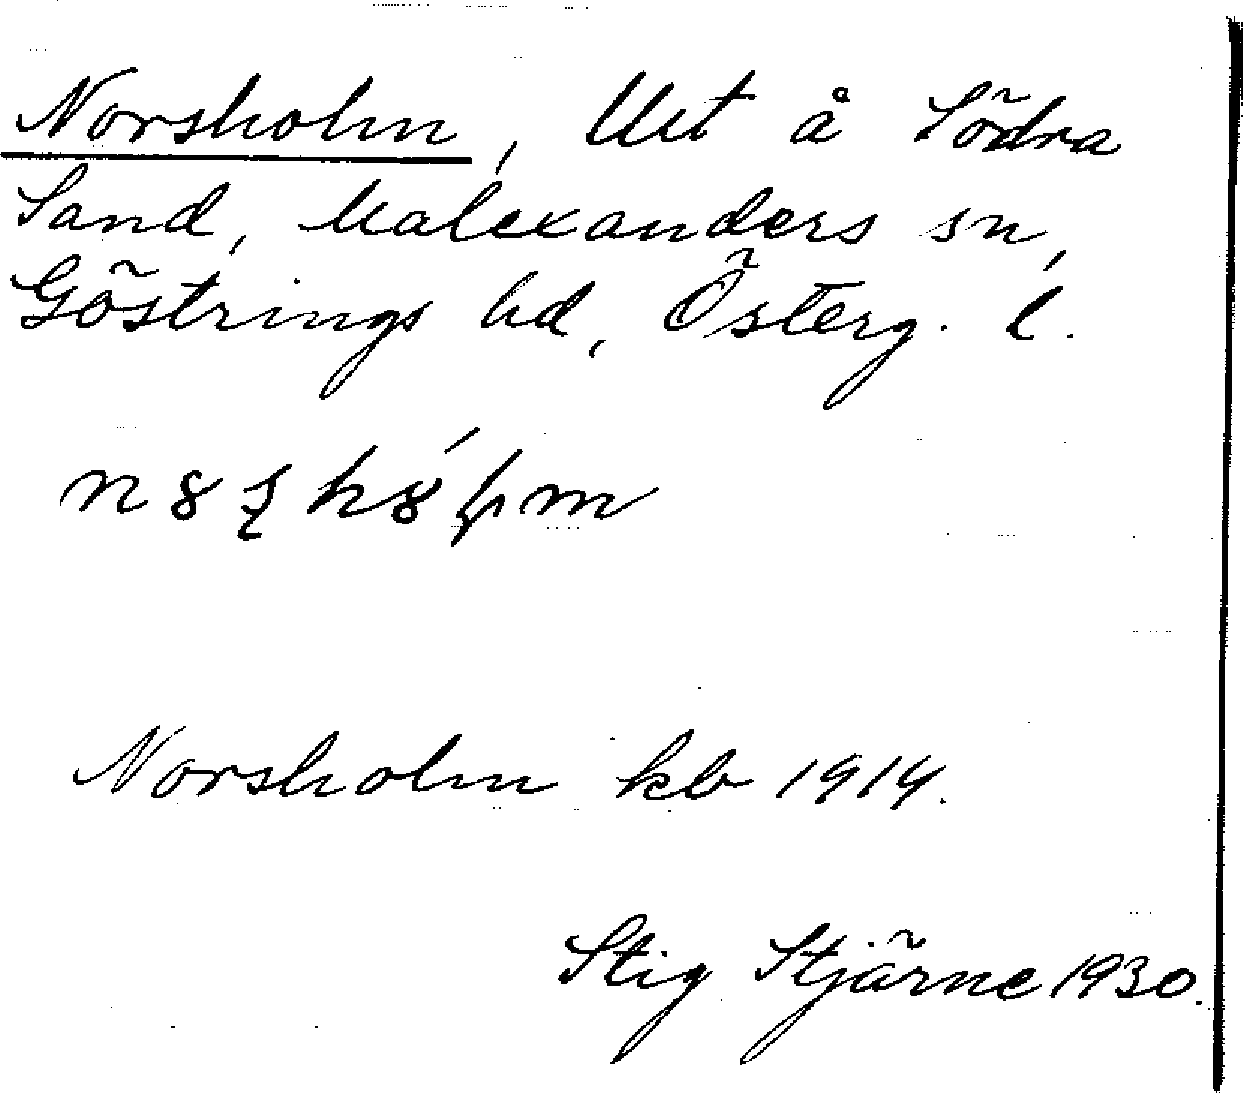 Norsholm, Uet å Södra
Sand, Malexanders sn,
Göstrings hd, Österg. l.
Norsholm kb 1914.
Stig Stjärne 1930.